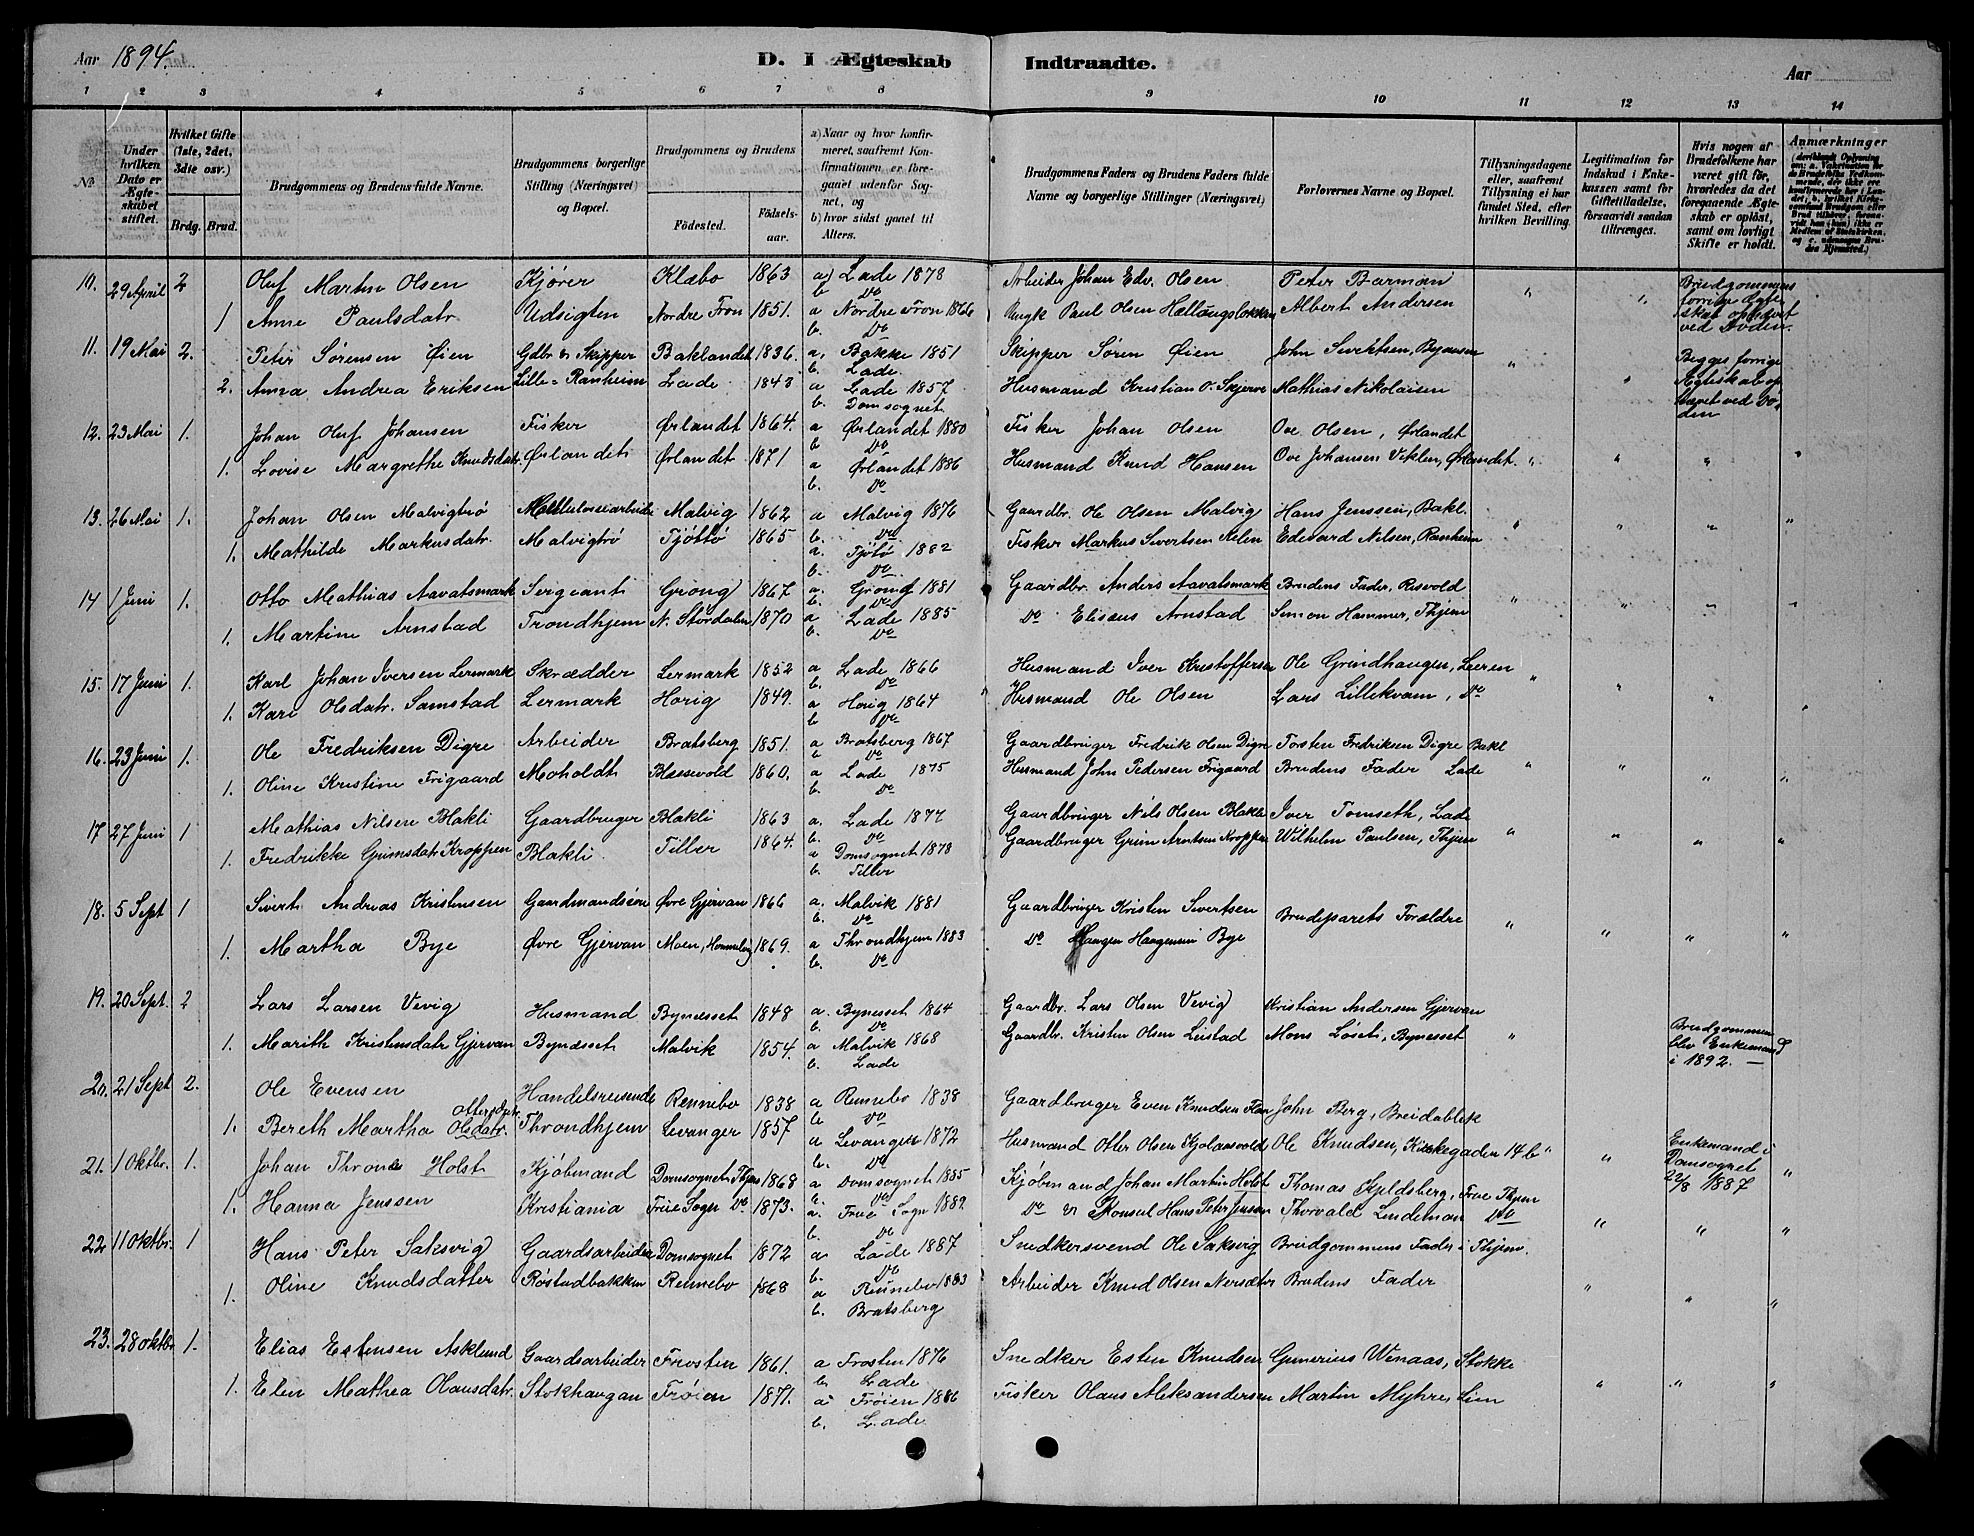 Aar 1894.
D. I Ægteskab Indtraadte.
Aar
1 2 3 4 5 6 7 8 9 10 11 12 13 14
No.
Under hvilken Dato er Ægteskabet stiftet.
Hvilket Gifte (1ste, 2det, 3die osv.)
Brdg. Brud.
Brudgommens og Brudens fulde Navne.
Brudgommens borgerlige Stilling (Næringsvei) og Bopæl.
Brudgommens og Brudens
Födested.
Födselsaar.
a) Naar og hvor konfirmeret, saafremt Konfirmationen er foregaaet udenfor Sognet, og
b) hvor sidst gaaet til Alters.
Brudgommens Faders og Brudens Faders fulde Navne og borgerlige Stillinger (Næringsvei)
Forlovernes Navne og Bopæl.
Tillysningsdagene eller, saafremt Tillysning ei har fundet Sted, efter hvilken Bevilling.
Legitimation for Indskud i Enkekassen samt for Giftetilladelse, forsaavidt saadan tiltrænges.
Hvis nogen af Brudefolkene har været gift för, hvorledes da det foregaaende Ægteskab er oplöst, samt om lovligt Skifte er holdt.
Anmærkninger
10. 29 April 2 Oluf Martin Olsen Kjører Klæbo 1863 a) Lade 1878 Arbeider Johan Edv. Olsen Peter Barman " " Brudgommens forrige Ægteskab ophævet ved Döden.
b Do
1 Anne Paulsdatr. Udsigten Nordre Fron 1851. a Nordre Fron 1866 Paul Olsen Albert Andersen
b. Do
11. 19 Mai 2. Peter Sørensen Øien Gdbr. & Skipper Baklandet 1836. a. Bakke 1851 Skipper Søren Øien John " " Begges forrige Ægteskab ophævet ved Döden
b. Lade.
2. Anna Andrea Eriksen Lille-Ranheim Lade 1843 a Lade 1857 Husmand Kristian O. Skjerve Mathias Nikolaisen
b. Domsognet
12. 23 Mai 1. Johan Oluf Johansen Fisker Ørlandet 1864. a Ørlandet 1880 Fisker Johan Olsen Ove Olsen, Ørlandet
b Do
1. Lovise Margrethe Knudsdatr. Ørlandet Ørlandet 1871 a Ørlandet 1886 Husmand Knud Hansen Ove Johansen Viklen, Ørlandet. " " " "
b. Do
13. 26 Mai 1. Johan Olsen Malvigtrø Malvig 1862 a Malvig 1876 Gaardbr. Ole Olsen Malvig Hans Jenssen, Bakl.
b. Do
1. Mathilde Markusdatr. Malvigtrø Tjöttö 1865 a. Tjötö 1882 Fisker Markus Sivertsen Edevard Nilsen, Ranheim " " " "
b. Do
14 1 Juni 1. Otto Mathias Aavatsmark Sergeant Grong 1867 a Grong 1881 Gaardbr. Anders Aavatsmark Brudens Fader, Risvold
b. Do
1. Martine Arnstad Trondhjem N. Stördalen 1870 a Lade 1885 Do Elisæus Arnstad Simon Hammer, Thjem " " " "
b. Do
15. 17 Juni 1. Karl Johan Iversen Lermark Skrædder Lermark 1852 a Lade 1866 Husmand Iver Kristoffersen Ole Grindhaugen, Leeren
b. Do
1. Kari Olsdatr. Samstad Lermark Horig 1849. a Horig 1864 Husmand Ole Olsen Lars Lillekvam, Do " " " "
b Do
16. 23 Juni 1. Ole Fredriksen Digre Arbeider Bratsberg 1851. a Bratsberg 1867 Gaardbruger Fredrik Olsen Digre Torsten Fredriksen Digre Bakl
b Do
1. Oline Kristine Frigaard Moholdt 1860. a Lade 1875 Husmand John Pedersen Frigaard Brudens Fader Lade " " " "
b. Do
17 27 Juni 1 Mathias Nilsen Blakli Gaardbruger Blakli 1863 a. Lade 1877 Gaardbruger Nils Olsen Blakli Iver Tomseth, Lade
b. Do
1. Fredrikke Grimsdatr. Kroppen Blakli. Tiller 1864. a Domsognet 1878 Gaardbruger Grim Arntsen Kroppen Wilhelm Paulsen, Thjem " " " "
b. Tiller
18. 5 Sept 1 Sivert Andreas Kristensen Gaardmandssön Øvre Gjervan 1866 a. Malvik 1881 Gaardbruger Kristen Sivertsen Brudeparets Forældre
b. Do
1. Martha Bye Øvre Gjervan Moen, Hommelvig 1869. a Throndhjem 1883 Do Haagen Haagensen Bye " " " "
b. Do
19. 20 Sept. 2 Lars Larsen Vevig Husmand Bynesset 1848 a. Bynesset 1864 Gaardbr. Lars Olsen Vevig Kristian Andersen Gjervan
b. Do
1. Marith Kristensdatr Gjervan Bynæsset Malvik 1854. a Malvik 1868 Gaardbr. Kristen Olsen Leistad Mons Löseti, Bynesset " Brudgommen blev Enkemand i 1892. —
b. Lade
20. 21 Sept 2. Ole Evensen Handelsreisende Rennebo 1838 a Rennebo 1838 Gaardbruger Even Knudsen John Berg, Breidablik
b Do
1. Bereth Martha Ottersdatr. Olsdatr. Throndhjem Levanger 1857 a Levanger 1872 Husmand Otter Olsen Kjolansvold Ole Knudsen, Kirkegaden 14b " " Enkemand i Domsognet 22/8 1887 "
b. Do
21. 1 Oktbr. 1. Johan Throne Holst Kjøbmand Domsognet Thjem 1868 a Domsognet 1885 Kjøbmand Johan Martin Holst Thomas Fjeldsberg, Frue Thjem
b. Do
1. Hanna Jenssen Kristiania Frue Sogn Do 1873. a. Frue Sogn 1889 Do & Konsul Hans Peter Jenssen Thorvald Lindeman Do " " "
b. Do
22 11 Oktbr. 1 Hans Peter Saksvig Gaardsarbeider Domsognet 1872 a. Lade 1887 Snedkersvend Ole Saksvig Brudgommens Fader i Thjem.
b. Do
1. Oline Knudsdatter Röstadbakken Rennebo 1868 a Rennebo 1883 Arbeider Knud Olsen Nersæter Brudens Fader " " "
b. Bratsberg
23. 28 Oktbr 1. Elias Estensen Asklund Gaardsarbeider Frosten 1861. a Frosten 1876 Snedker Esten Knudsen Gunerius Winaas, Stokke
b. Lade
1. Elen Mathea Olausdatr. Stokhaugan Fröien 1871. a Fröien 1886 Fisker Olaus Aleksandersen Martin Myhre, Lim " " "
b. Lade